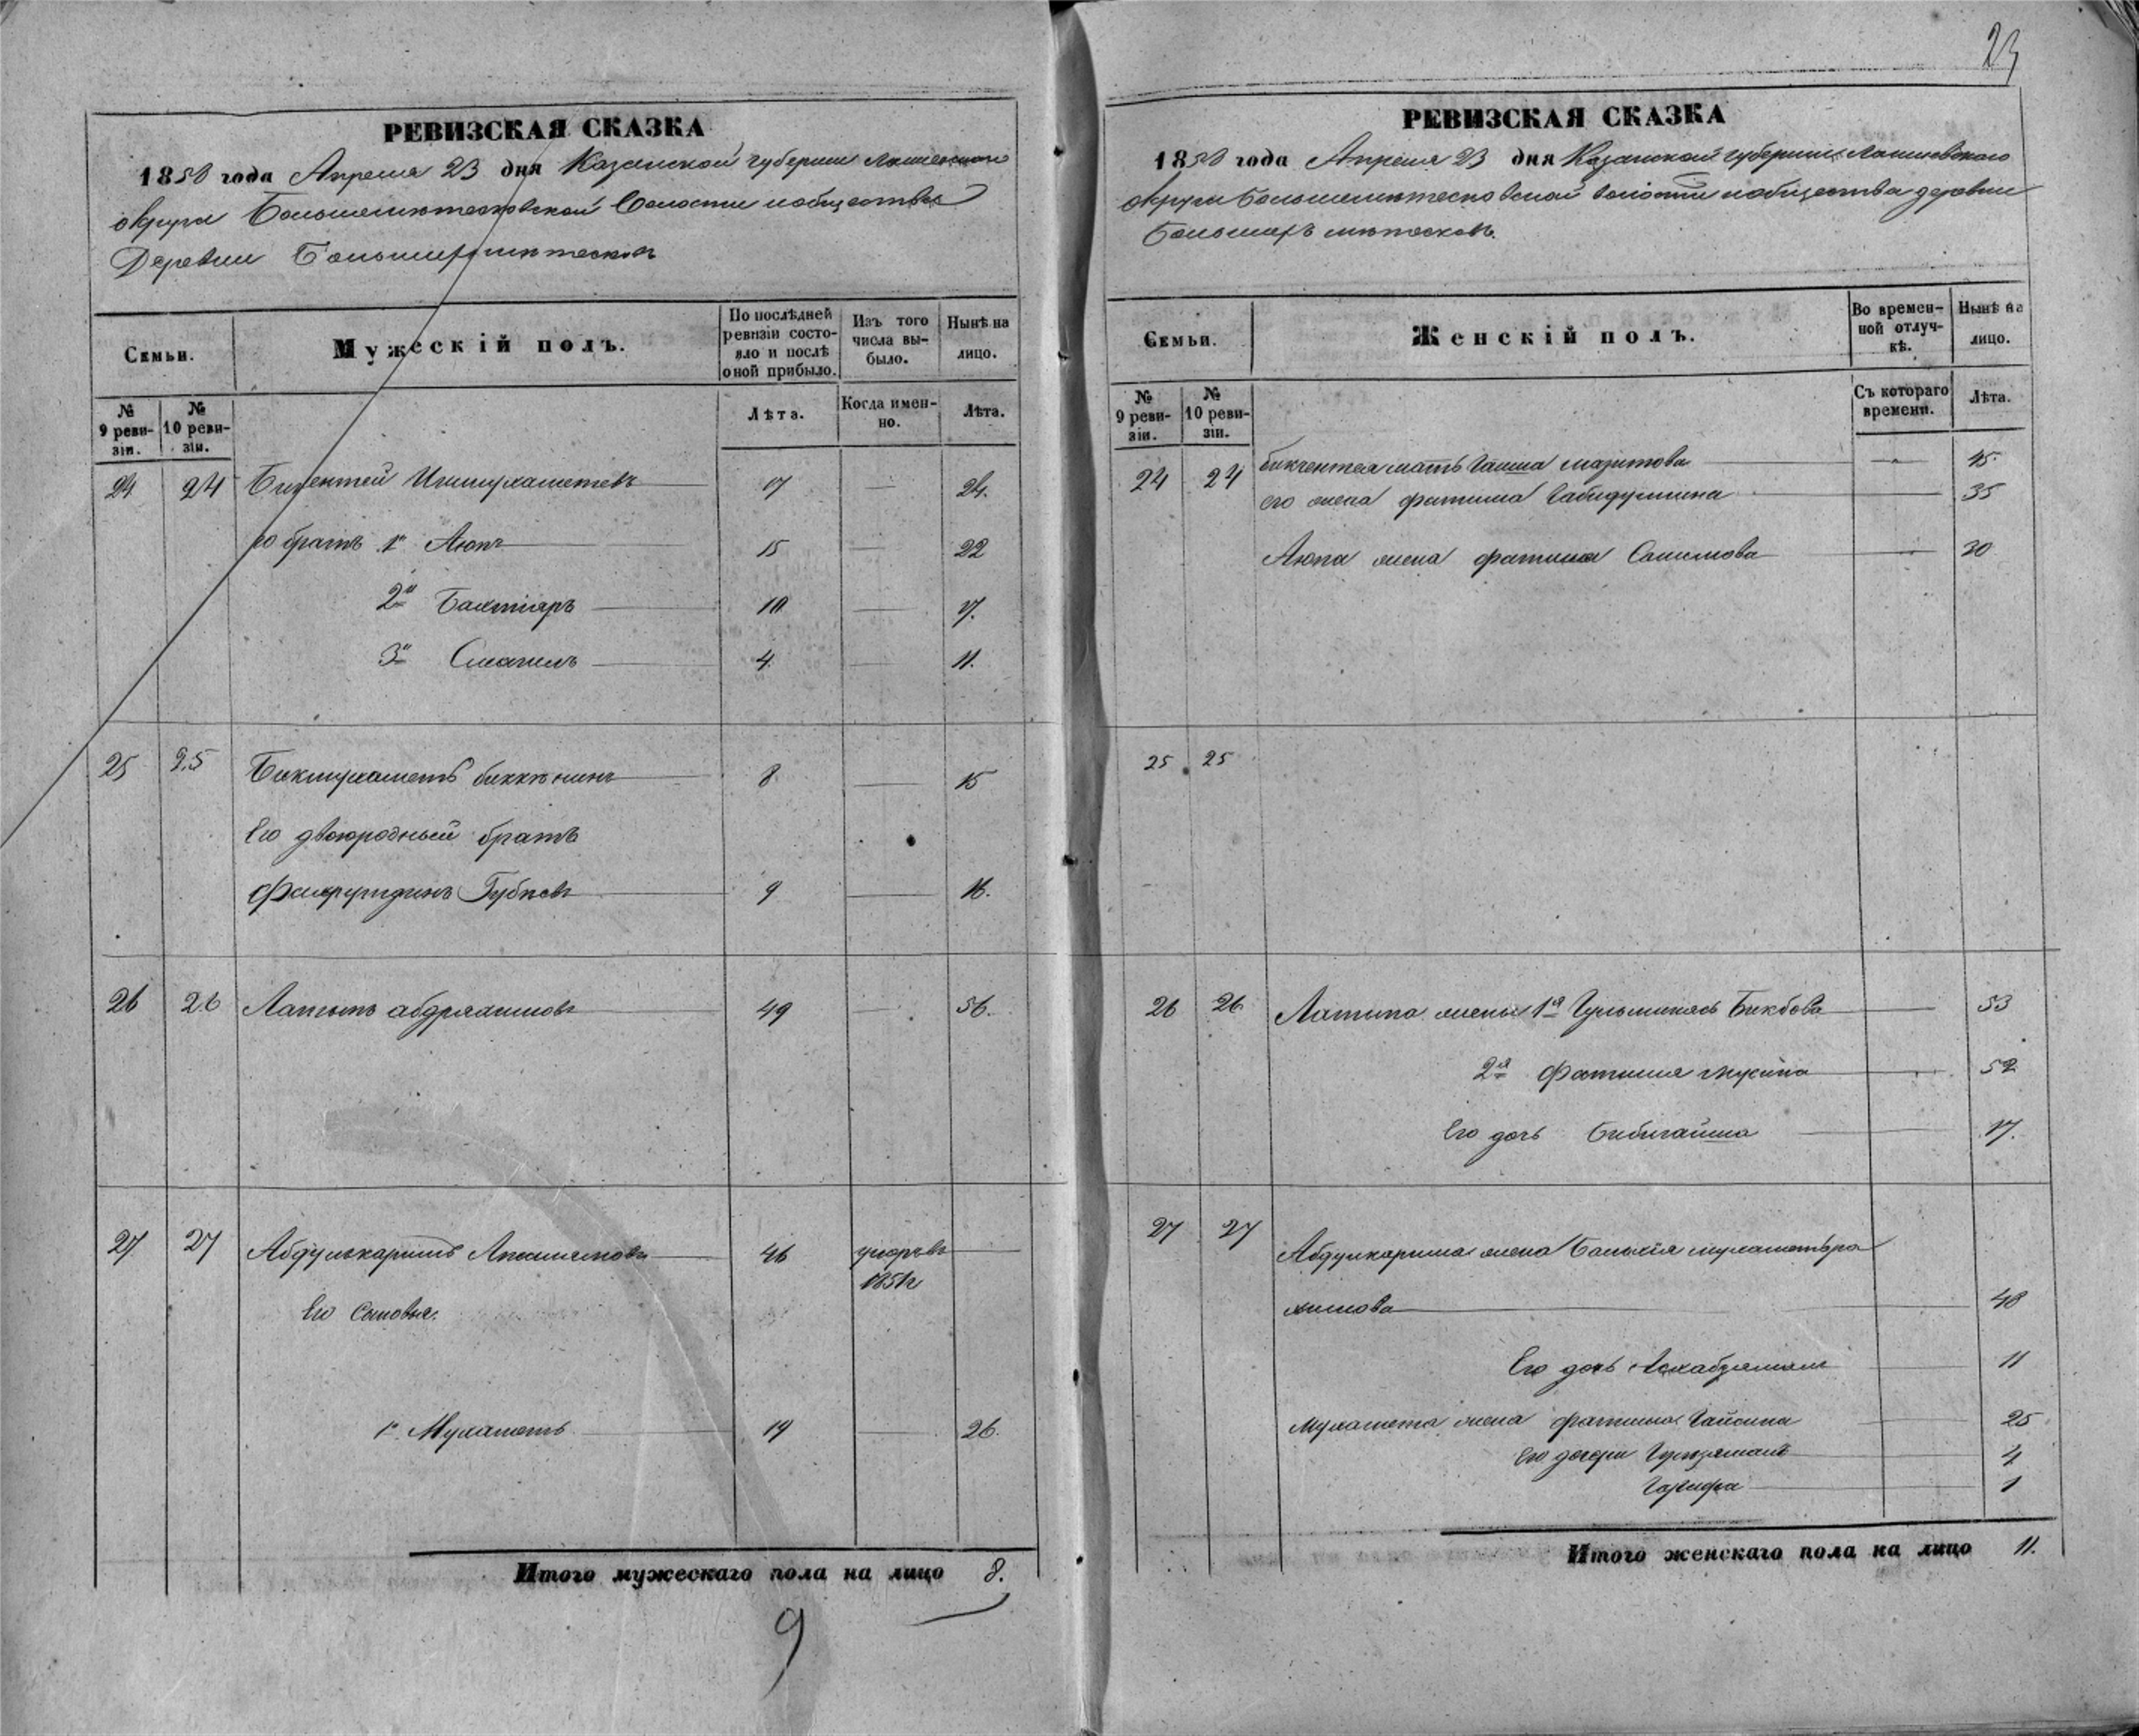 23
РЕВИЗСКАЯ СКАЗКА
1858 года Апреля 23 дня Казанской губернии Лаишевскаго
округа Большеметесковской Волости и общества
Деревни Большихъ метесковъ
Семьи.
Мужескій полъ.
По послѣдней ревизіи состояло и послѣ оной прибыло.
Изъ того числа выбыло.
Нынѣ на лицо.
№ 9 ревизіи.
№ 10 ревизіи.
Лѣта.
Когда именно.
Лѣта.
24 24 17 — 24.
его братъ 1й Аюпъ 15 — 22
2й Бахтіяръ 10 — 17.
3й Смагилъ 4. — 11.
25 25 Бикмухаметъ 8 — 15
Его двоюродный братъ
9 — 16.
26 26 49 — 56.
27 27 Абдулкаримъ 46 умеръ въ
1851г
Его сыновья.
1й Мухаметъ 19 — 26.
Итого мужескаго пола на лицо 8.
9
РЕВИЗСКАЯ СКАЗКА
1858 года Апреля 23 дня Казанской губернии Лаишевского
округа Большеметесковской волости и общества деревни
Большихъ метесковъ.
Семьи.
Женскій полъ.
Во временной отлучкѣ.
Нынѣ на лицо.
№ 9 ревизіи.
№ 10 ревизіи.
Съ котораго времени.
Лѣта.
24 24 мать — 45.
его жена фатима Габидуллина — 35
Аюпа жена фатима Салимова — 30
25 25
26 26 Латыпа жены 1я — 53
2я Фатима мусина — 52
Его дочь — 17.
27 27 Абдулкарима жена
химова 48
Его дочь 11
Мухамета жена фатима 25
Его дочери 4
1
Итого женскаго пола на лицо 11.